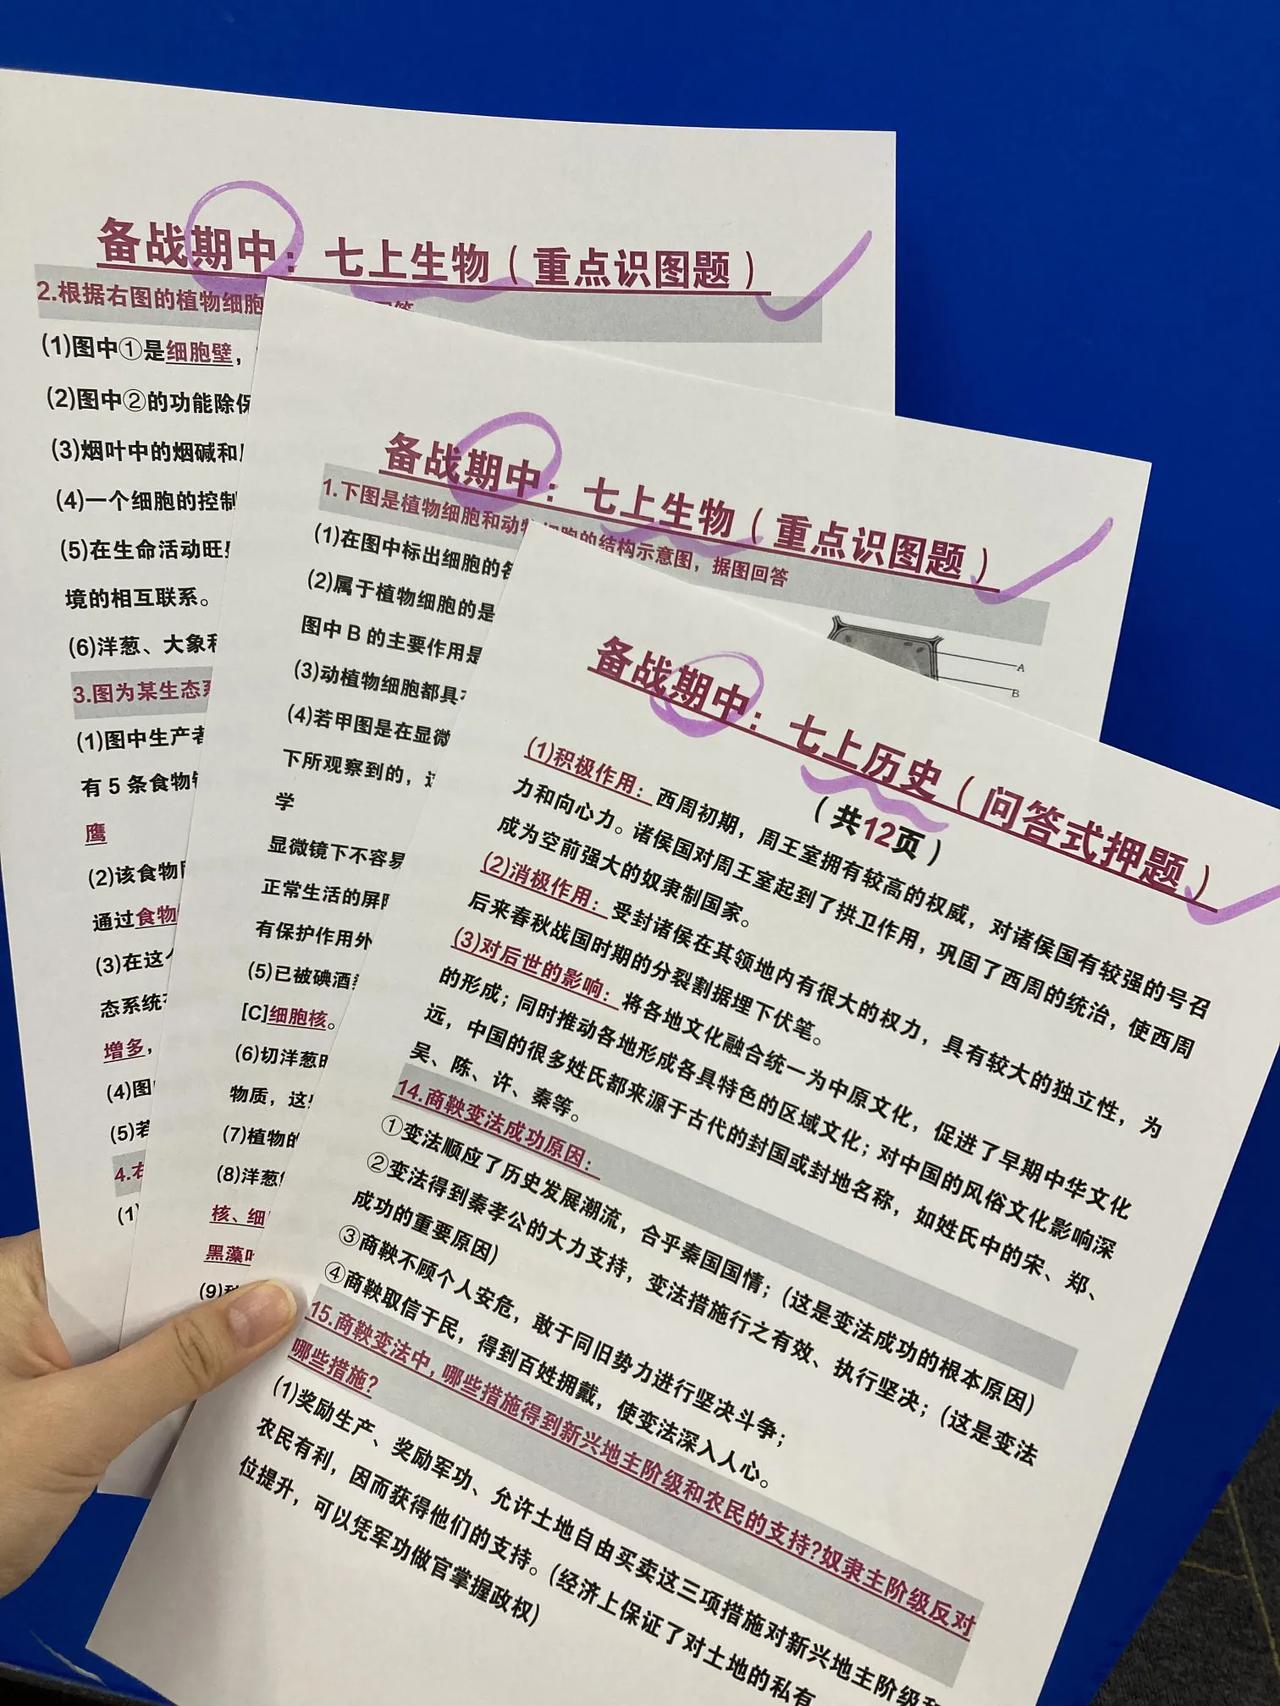 备战期中：七上生物（重点识图题）
2.根据右图的植物细胞
(1)图中①是细胞壁，
(2)图中②的功能除保
(3)烟叶中的烟碱和
(4)一个细胞的控制
(5)在生命活动旺
境的相互联系。
(6)洋葱、大象和
3.图为某生态系
(1)图中生产者
有5条食物链
鹰
(2)该食物
通过食物
(3)在这个
态系统
增多，
(4)图
(5)若
4.右
(1)
备战期中：七上生物（重点识图题）
1.下图是植物细胞和动物细胞的结构示意图，据图回答
(1)在图中标出细胞的各
(2)属于植物细胞的是
图中B的主要作用是
(3)动植物细胞都具有
(4)若甲图是在显微
下所观察到的，这
学
显微镜下不容易
正常生活的屏障
有保护作用外
(5)已被碘酒
[C]细胞核。
(6)切洋葱时
物质，这
(7)植物的
(8)洋葱
核、细
黑藻叶
(9)
A
B
备战期中：七上历史（问答式押题）
（共12页）
(1)积极作用：西周初期，周王室拥有较高的权威，对诸侯国有较强的号召
力和向心力。诸侯国对周王室起到了拱卫作用，巩固了西周的统治，使西周
成为空前强大的奴隶制国家。
(2)消极作用：受封诸侯在其领地内有很大的权力，具有较大的独立性，为
后来春秋战国时期的分裂割据埋下伏笔。
(3)对后世的影响：将各地文化融合统一为中原文化，促进了早期中华文化
的形成；同时推动各地形成各具特色的区域文化；对中国的风俗文化影响深
远，中国的很多姓氏都来源于古代的封国或封地名称，如姓氏中的宋、郑、
吴、陈、许、秦等。
14.商鞅变法成功原因：
①变法顺应了历史发展潮流，合乎秦国国情；(这是变法成功的根本原因)
②变法得到秦孝公的大力支持，变法措施行之有效、执行坚决；(这是变法
成功的重要原因)
③商鞅不顾个人安危，敢于同旧势力进行坚决斗争；
④商鞅取信于民，得到百姓拥戴，使变法深入人心。
15.商鞅变法中，哪些措施得到新兴地主阶级和农民的支持?奴隶主阶级反对
哪些措施?
(1)奖励生产、奖励军功、允许土地自由买卖这三项措施对新兴地主阶级和
农民有利，因而获得他们的支持。(经济上保证了对土地的私有
位提升，可以凭军功做官掌握政权)